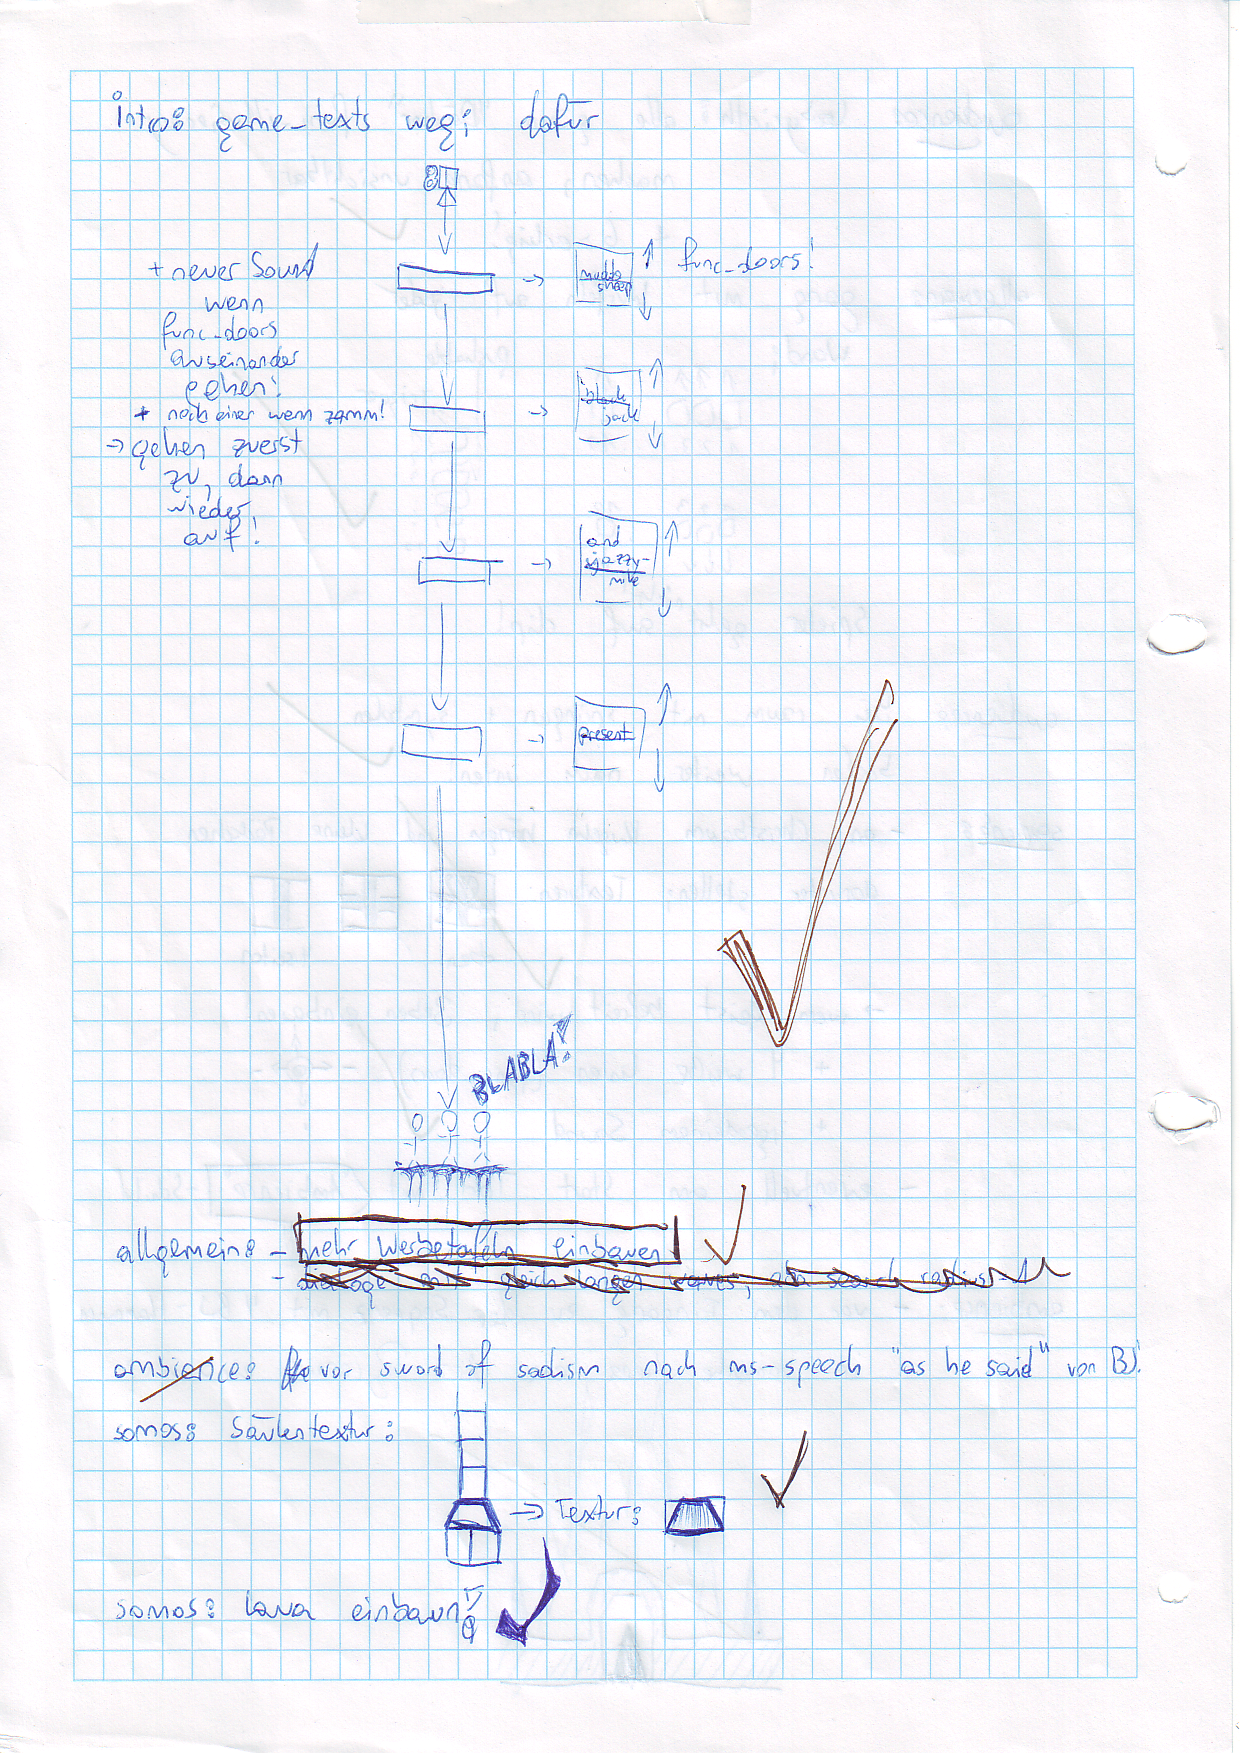 intro: game-texts weg; dafür
+ neuer Sound
wenn
func_doors
auseinander
gehen!
+ noch einer wenn zamm!
-> gehen zuerst
zu, dann
wieder
auf!
func_doors!
black
jack
and
jazzy-
mike
present
BLABLA!
allgemein: - mehr Werbetafeln einbauen
- dialoge mit gleich langen waves,
ambience: vor sword of sadism nach ms-speech "as he said" von BJ!
somos: Säulentextur:
-> Textur:
somos: Lava einbaun!